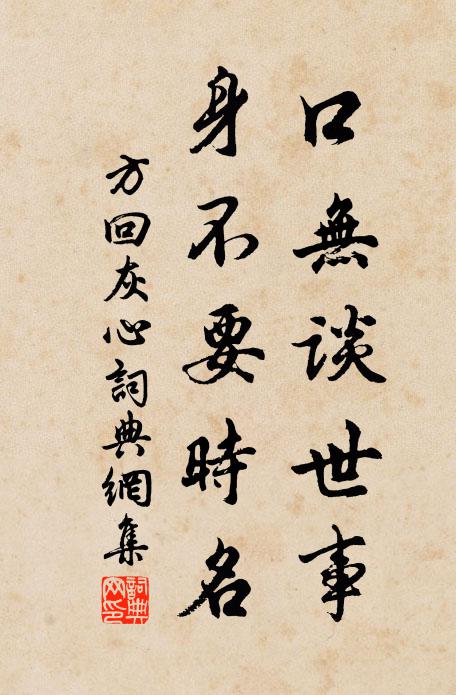 口無談世事
身不要時名
方回灰心詞典網集
詞典
网印